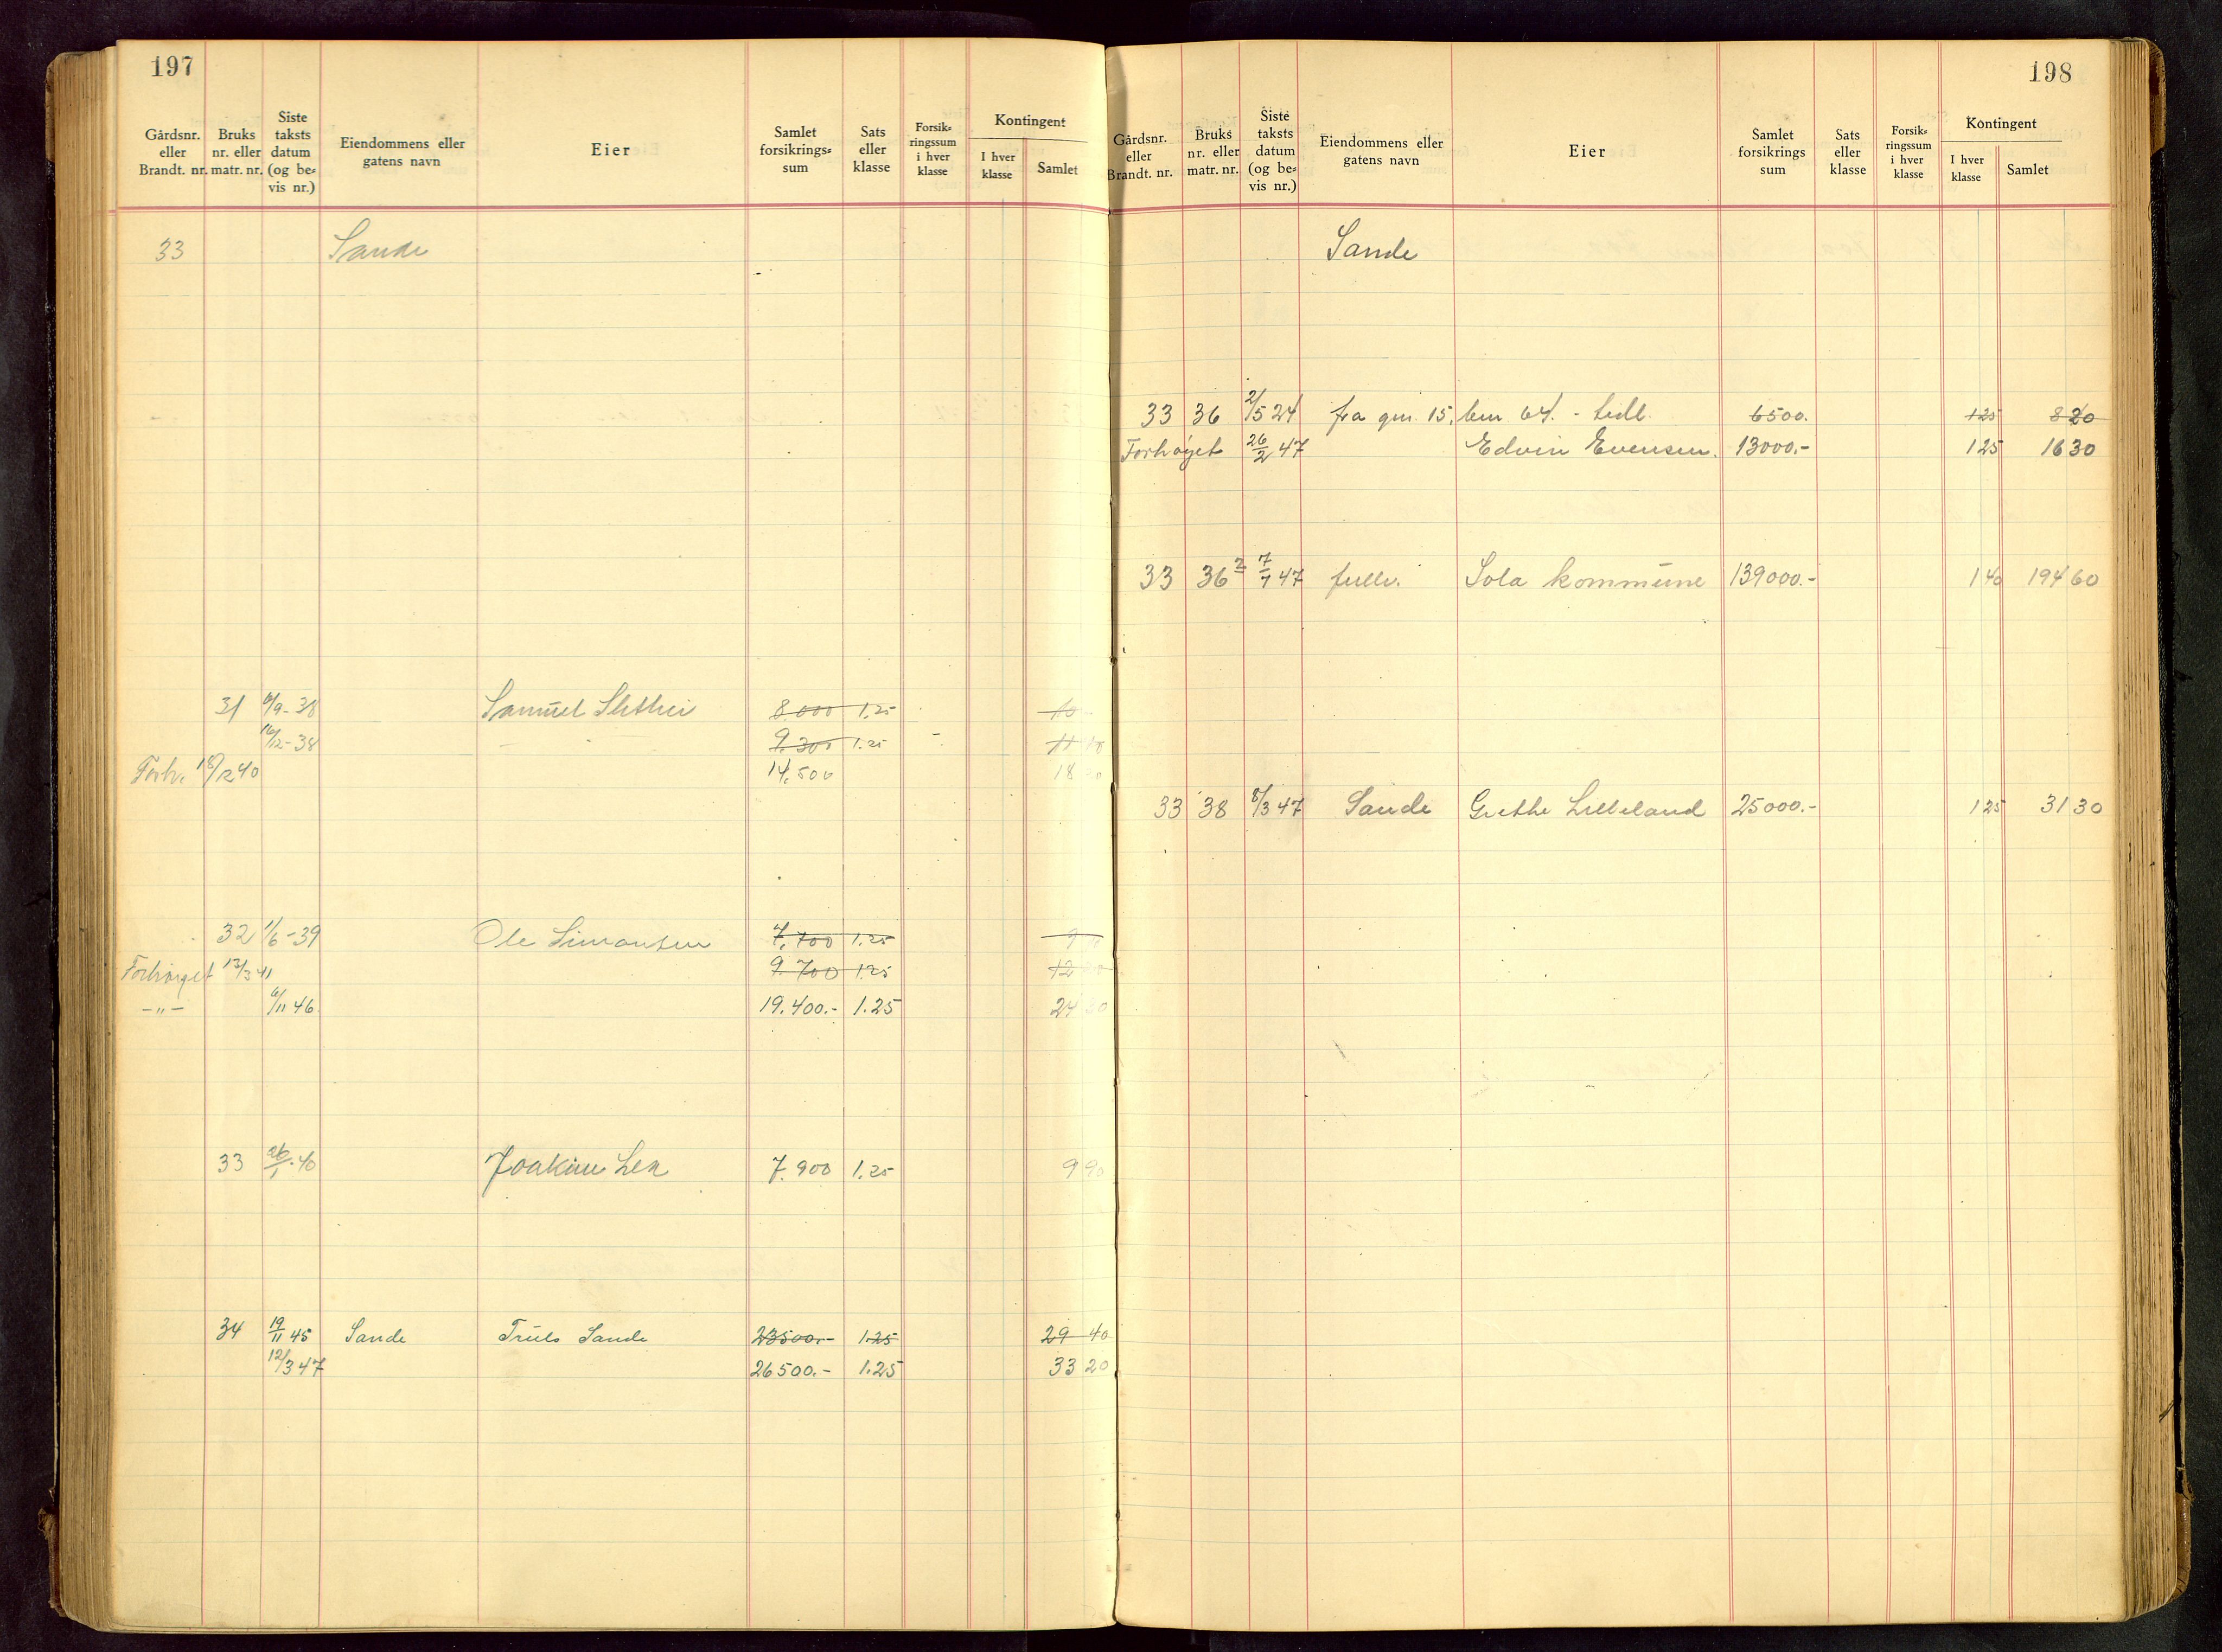 197
Gårdsnr. eller Brandt. nr.
Bruks nr. eller matr. nr.
Siste taksts datum (og be= vis nr.)
Eiendommens eller gatens navn
Eier
Samlet forsikrings= sum
Sats eller klasse
Forsik= ringssum i hver klasse
Kontingent
I hver klasse
Samlet
33 Sande
31 /9-38 Samuel Slethei 8.000 1.25 10
16/12-38 - - 9.300 1.25 11
Forh. 18/12 40 14.500 18
32 1/6-39 Ole Simonsen 7.700 1.25 9
Forhøyet 13/3 41 9.700 1.25 12
-"- 6/11 46 19.400.- 1.25 24
33 26/1-40 Joakim Lea 7.900 1.25 9 90
34 19/11 45 Sande Truls Sande 23500.- 1.25 29 40
12/3 47 26500.- 1.25 33 20
198
Gårdsnr. eller Brandt. nr.
Bruks nr. eller matr. nr.
Siste taksts datum (og be= vis nr.)
Eiendommens eller gatens navn
Eier
Samlet forsikrings sum
Sats eller klasse
Forsik= ringssum i hver klasse
Kontingent
I hver klasse
Samlet
Sande
33 36 2/5 24 fra gnr. 15, bnr 64. - 6500. 125 8 20
Forhøyet 26/2 47 Edvin Evensen. 13000.- 125 16 30
33 36 2 7/7 47 Sola kommune 139000.- 140 194 60
33 38 8/3 47 Sande Grethe Lilleland 25000.- 125 31 30